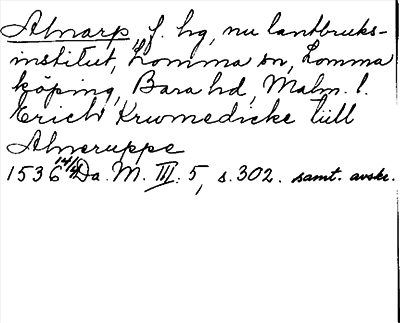 Alnarp, f. hg, nu lantbruks-
institut, Lomma sn, Lomma
köping, Bara hd, Malm. l.
Erich Krwmedicke tüll
Alneruppe
1536 14/4 Da. M. III: 5, s. 302. samt. avskr.